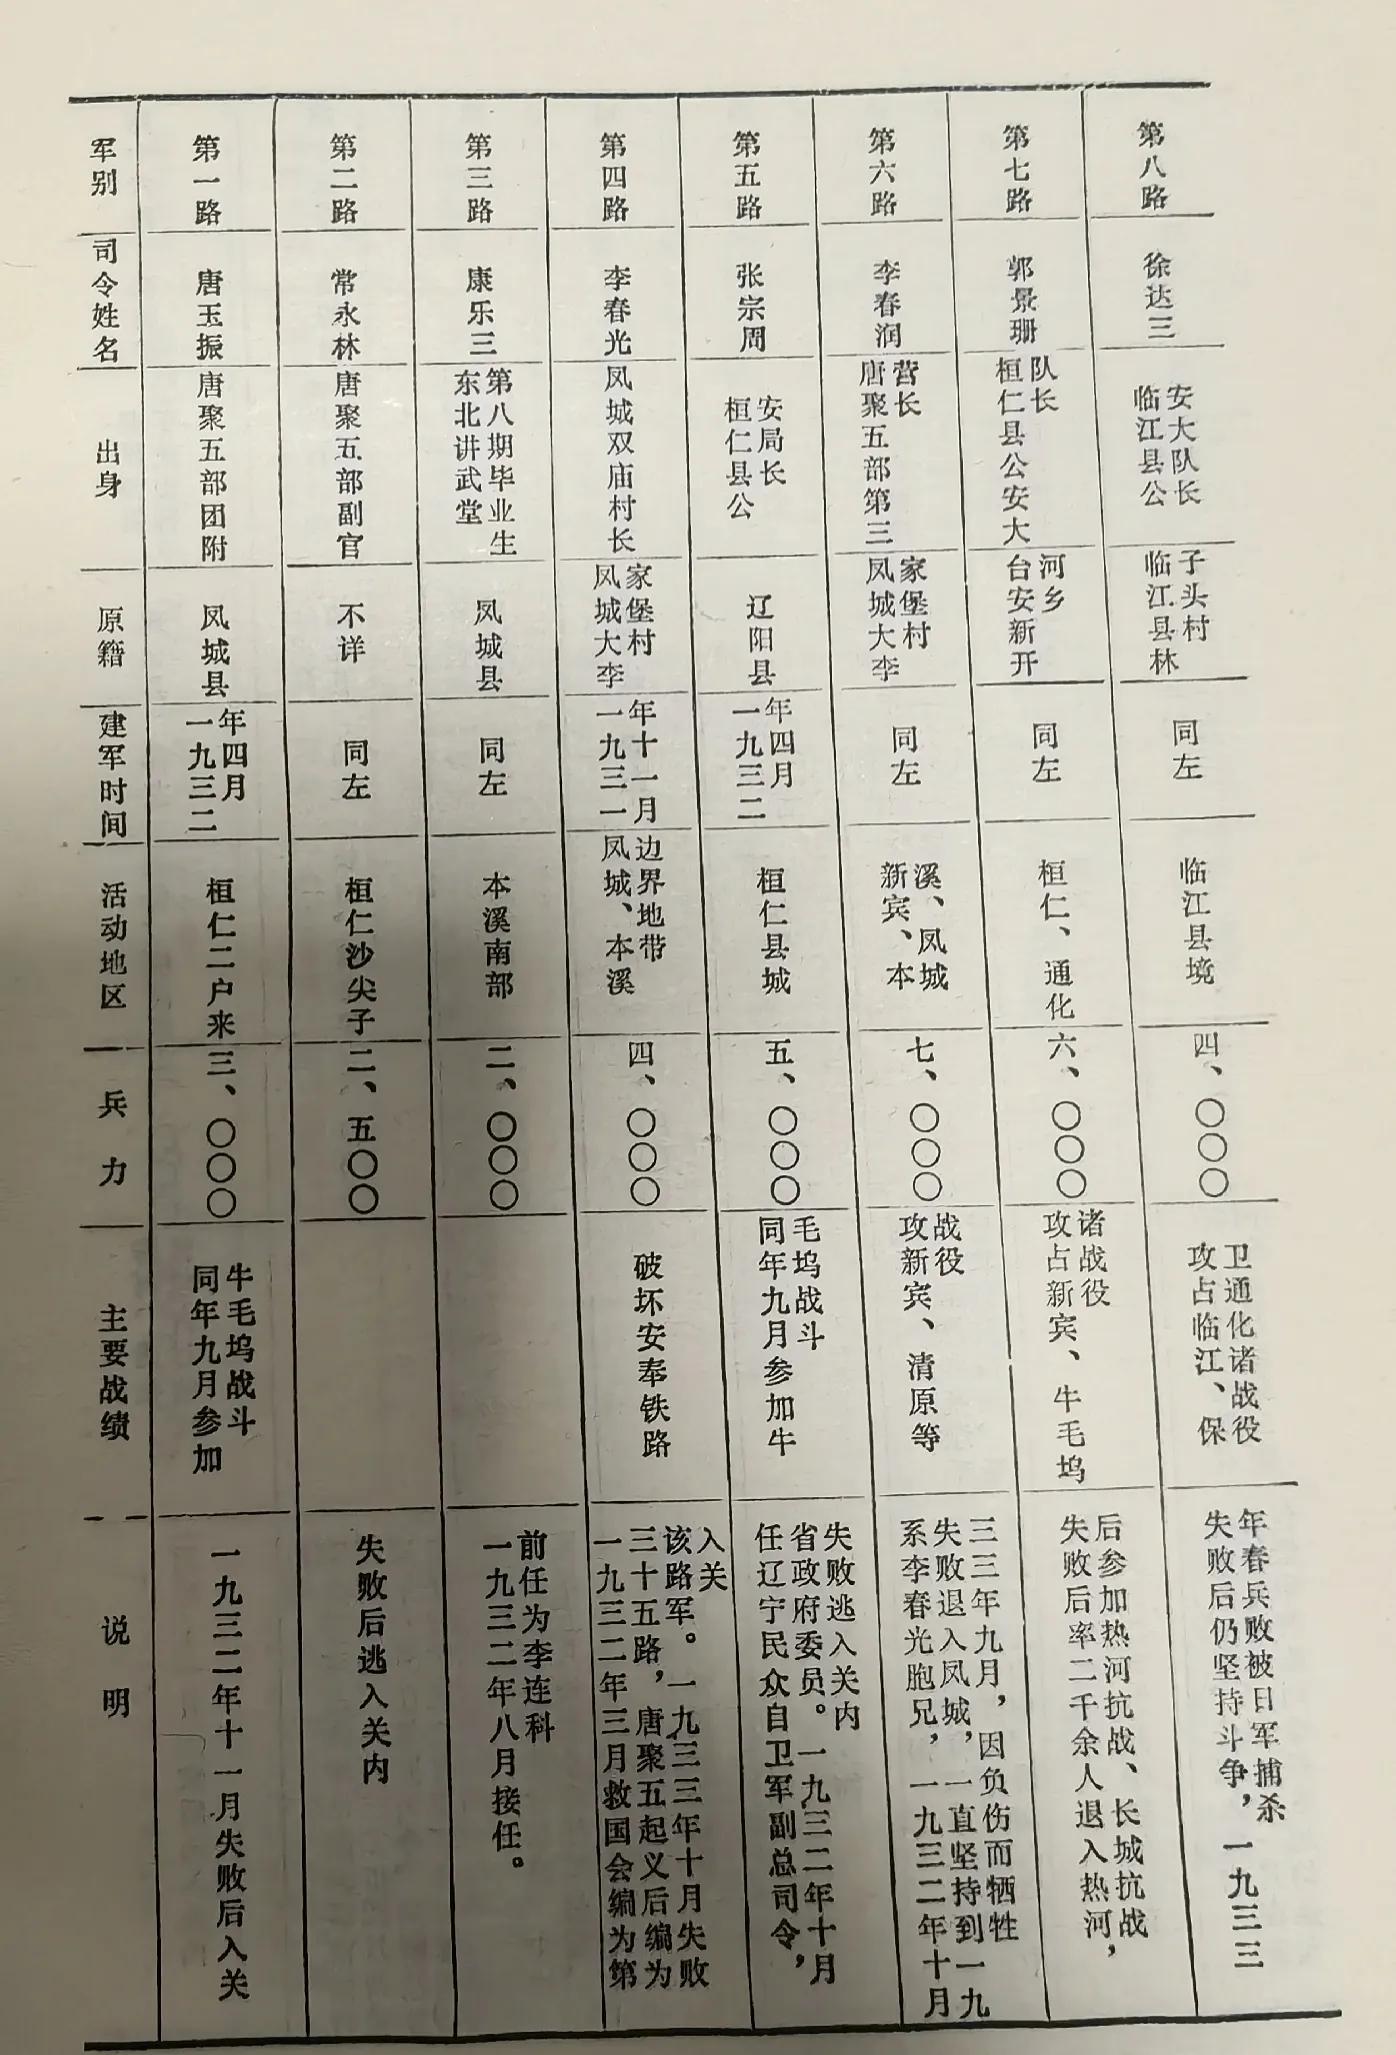 军别
司令姓名
出身
原籍
建军时间
活动地区
兵力
主要战绩
说明
第一路
唐玉振
唐聚五部团附
凤城县
一九三二
年四月
桓仁二户来
三、〇〇〇
同年九月参加
牛毛坞战斗
一九三二年十一月失败后入关
第二路
常永林
唐聚五部副官
不详
同左
桓仁沙尖子
二、五〇〇
失败后逃入关内
第三路
康乐三
东北讲武堂
第八期毕业生
凤城县
同左
本溪南部
二、〇〇〇
一九三二年八月接任。
前任为李连科
第四路
李春光
凤城双庙村长
凤城大李
家堡村
一九三一
年十一月
凤城、本溪
边界地带
四、〇〇〇
破坏安奉铁路
一九三二年三月救国会编为第
三十五路，唐聚五起义后编为
该路军。一九三三年十月失败
入关
第五路
张宗周
桓仁县公
安局长
辽阳县
一九三二
年四月
桓仁县城
五、〇〇〇
同年九月参加牛
毛坞战斗
任辽宁民众自卫军副总司令，
省政府委员。一九三二年十月
失败逃入关内
第六路
李春润
唐聚五部第三
营长
凤城大李
家堡村
同左
新宾、本
溪、凤城
七、〇〇〇
攻新宾、清原等
战役
系李春光胞兄，一九三二年十月
失败退入凤城，一直坚持到一九
三三年九月，因负伤而牺牲
第七路
郭景珊
桓仁县公安大
队长
台安新开
河乡
同左
桓仁、通化
六、〇〇〇
攻占新宾、牛毛坞
诸战役
失败后率二千余人退入热河，
后参加热河抗战、长城抗战
第八路
徐达三
临江县公
安大队长
临江县林
子头村
同左
临江县境
四、〇〇〇
攻占临江、保
卫通化诸战役
失败后仍坚持斗争，一九三三
年春兵败被日军捕杀